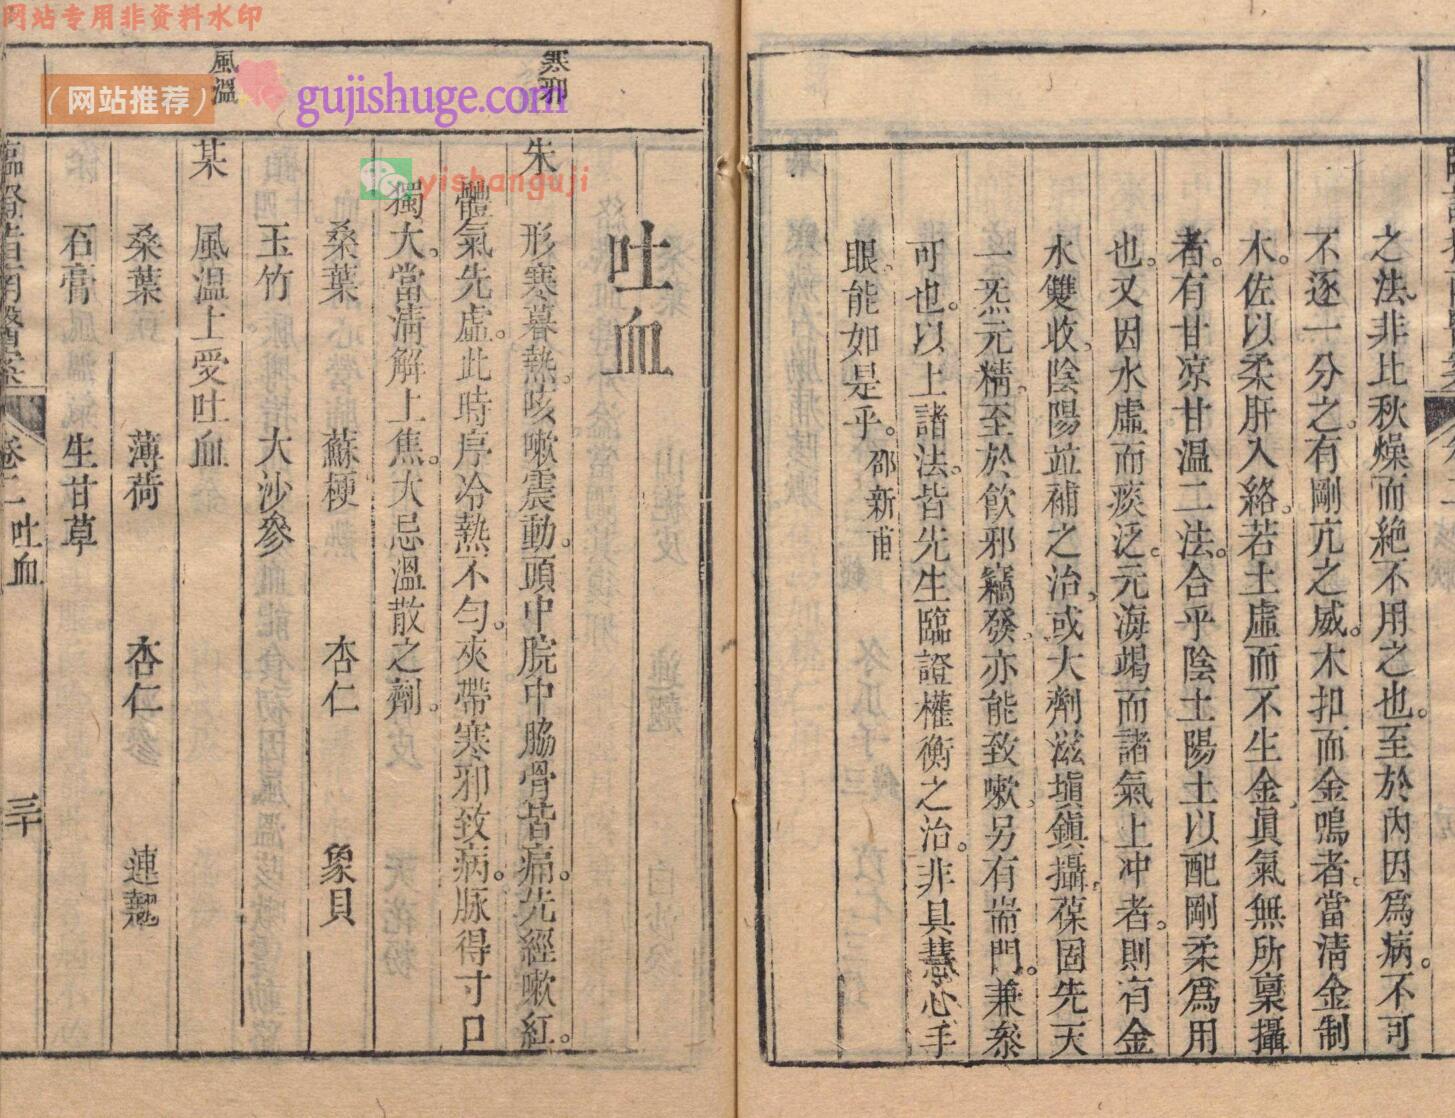 网站专用非资料水印
（网站推荐）
gujishuge.com
yishanguji
之法。非比秋燥而絶不用之也。至於內因爲病。不可
不逐一分之。有剛亢之威。木扣而金鳴者。當淸金制
木。佐以柔肝入絡。若土虛而不生金。眞氣無所稟攝
者。有甘凉甘温二法。合乎陰土陽土以配剛柔爲用
也。又因水虛而痰泛。元海竭而諸氣上冲者。則有金
水雙收。陰陽並補之治。或大劑滋塡鎭攝。葆固先天
一炁元精。至於飮邪竊發。亦能致嗽。另有耑門。兼叅
可也。以上諸法。皆先生臨證權衡之治。非具慧心手
眼。能如是乎。邵新甫
吐血
寒邪
朱
形寒暮熱。咳嗽震動。頭中脘中脇骨皆痛。先經嗽紅。
體氣先虛。此時序冷熱不匀。夾帶寒邪致病。脉得寸口
獨大。當淸解上焦。大忌溫散之劑。
桑葉 蘇梗 杏仁 象貝
玉竹 大沙參
風溫
某
風温上受吐血
桑葉 薄荷 杏仁 連翹
石膏 生甘草
臨證指南醫案 卷二 吐血 三十